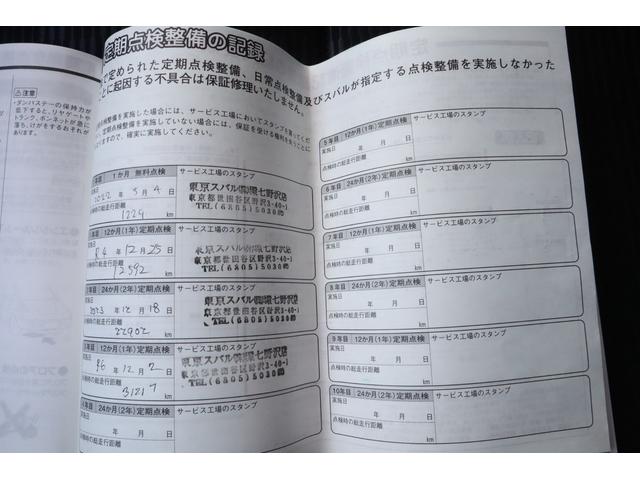 ⚠注意
・ダンパステーの保持力が
低下すると、リヤゲートや
トランク、ボンネットが急に
落ち、けがをするおそれが
あります。
定期点検整備の記録
で定められた定期点検整備、日常点検整備及びスバルが指定する点検整備を実施しなかった
とに起因する不具合は保証修理いたしません。
点検整備を実施した場合には、サービス工場においてスタンプを
定期点検整備を実施していない場合には、保証を受ける権利を
ますので、確実に実施してください。
1か月 無料点検
サービス工場のスタンプ
実施日
2022 年 5 月 4 日
点検時の総走行距離
1224 km
東京スバル㈱環七野沢店
東京都世田谷区野沢3-40-1
TEL(6805)5030㈹
12か月(1年)定期点検
サービス工場のスタンプ
実施日
R4 年 12 月 25 日
点検時の総走行距離
12592 km
東京スバル㈱環七野沢店
東京都世田谷区野沢3-40-1
TEL(6805)5030㈹
年目 24か月(2年)定期点検
サービス工場のスタンプ
実施日
2023 年 12 月 18 日
点検時の総走行距離
22902 km
東京スバル㈱環七野沢店
東京都世田谷区野沢3-40-1
TEL(6805)5030㈹
年目 12か月(1年)定期点検
サービス工場のスタンプ
実施日
R6 年 12 月 2 日
点検時の総走行距離
31217 km
東京スバル㈱環七野沢店
東京都世田谷区野沢3-40-1
TEL(6805)5030㈹
年目 24か月(2年)定期点検
サービス工場のスタンプ
実施日
年 月 日
点検時の総走行距離
km
5年目 12か月(1年)定期点検
サービス工場のスタンプ
実施日
年 月 日
点検時の総走行距離
km
6年目 24か月(2年)定期点検
サービス工場のスタンプ
実施日
年 月 日
点検時の総走行距離
km
7年目 12か月(1年)定期点検
サービス工場のスタンプ
実施日
年 月 日
点検時の総走行距離
km
8年目 24か月(2年)定期点検
サービス工場のスタンプ
実施日
年 月 日
点検時の総走行距離
km
9年目 12か月(1年)定期点検
サービス工場のスタンプ
実施日
年 月 日
点検時の総走行距離
km
10年目 24か月(2年)定期点検
サービス工場のスタンプ
実施日
年 月 日
点検時の総走行距離
km